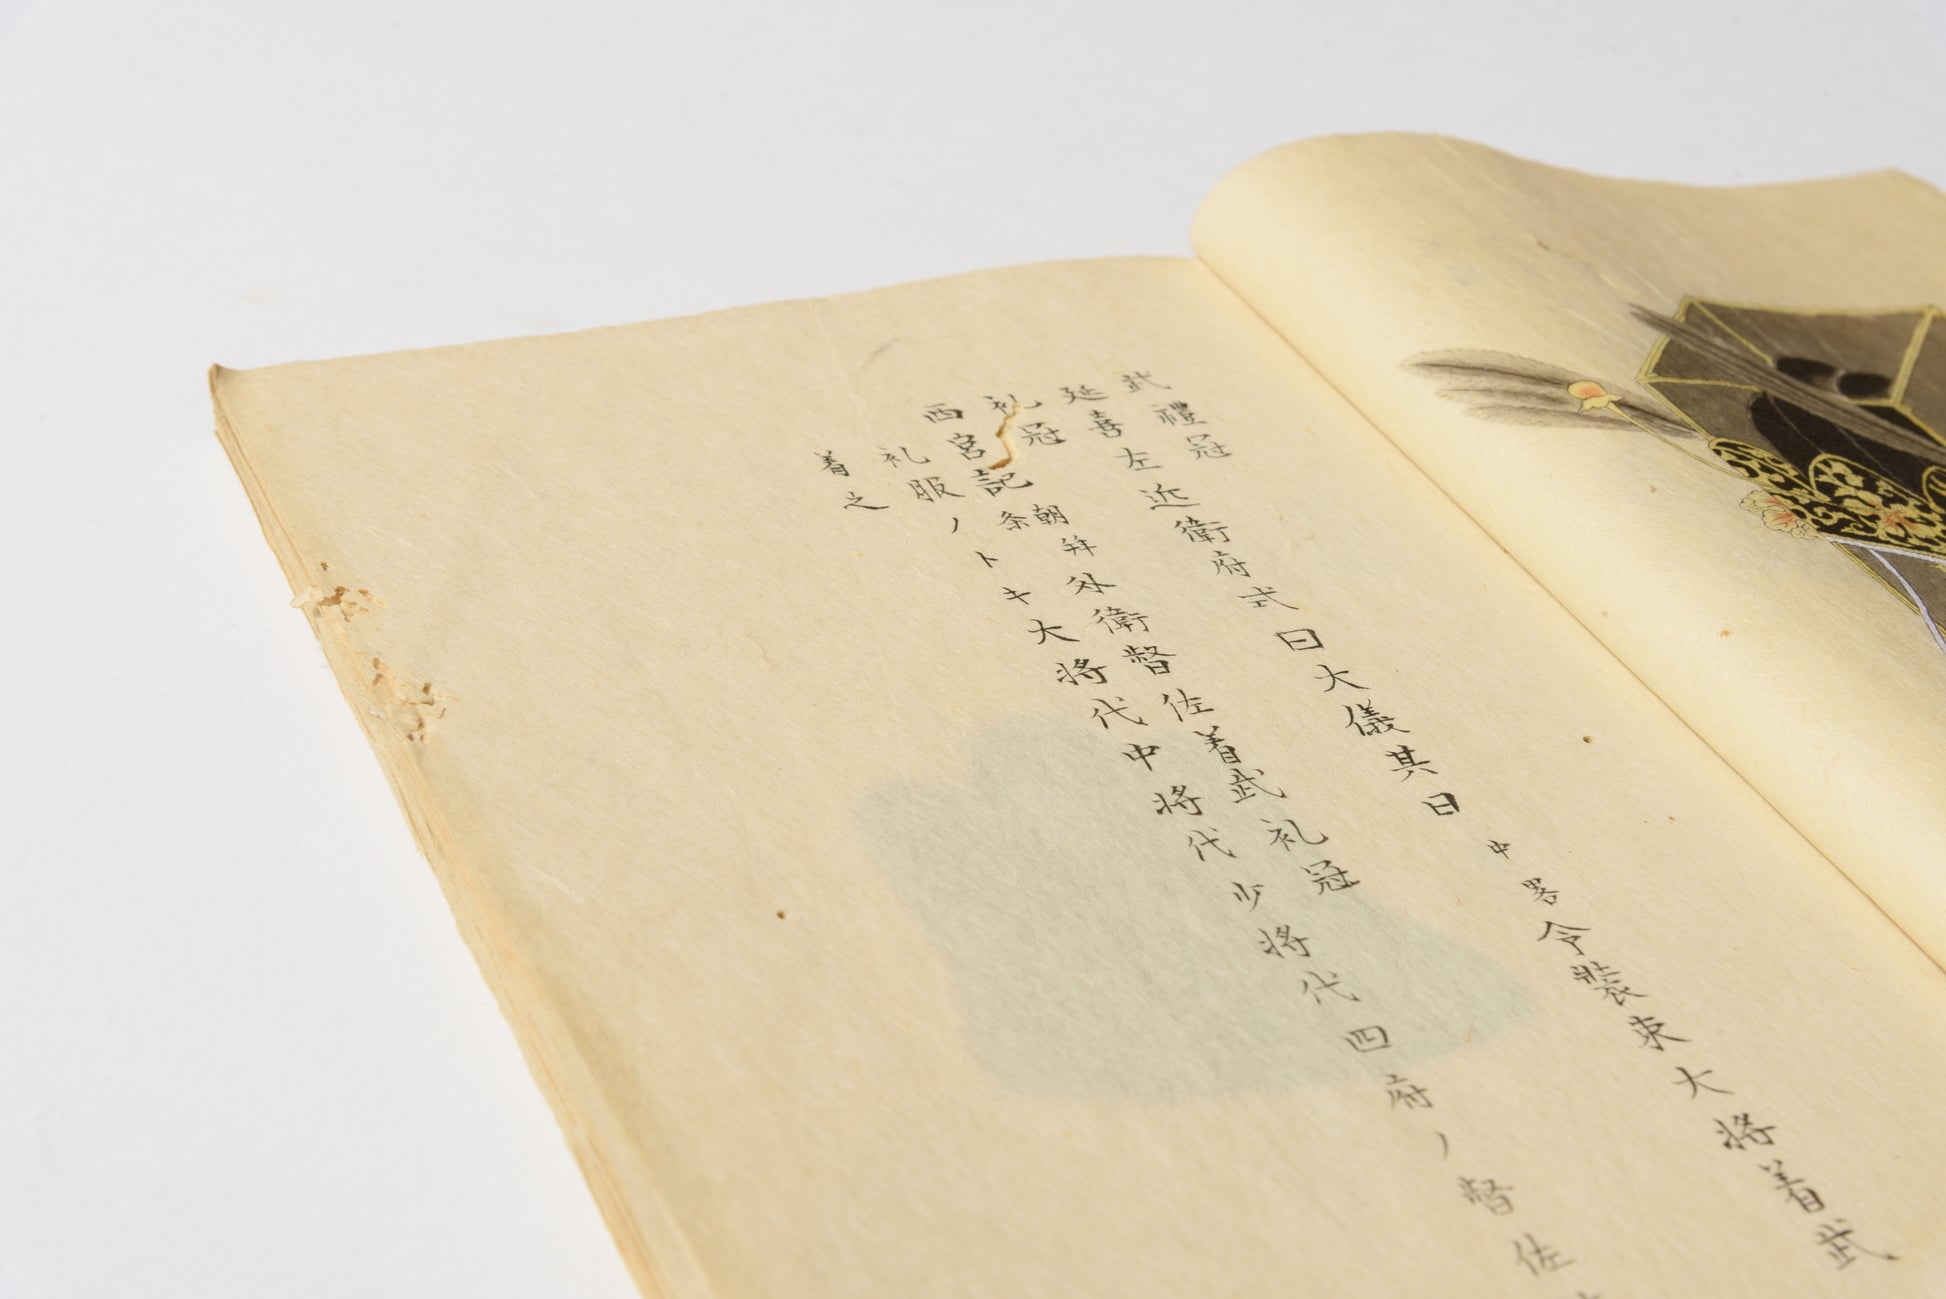 武禮冠
延喜左近衛府式曰大儀其日中畧令裝束大將着武
礼冠
西宮記朝拝条外衛督佐着武礼冠
礼服ノトキ大將代中將代少將代四府ノ督佐
着之